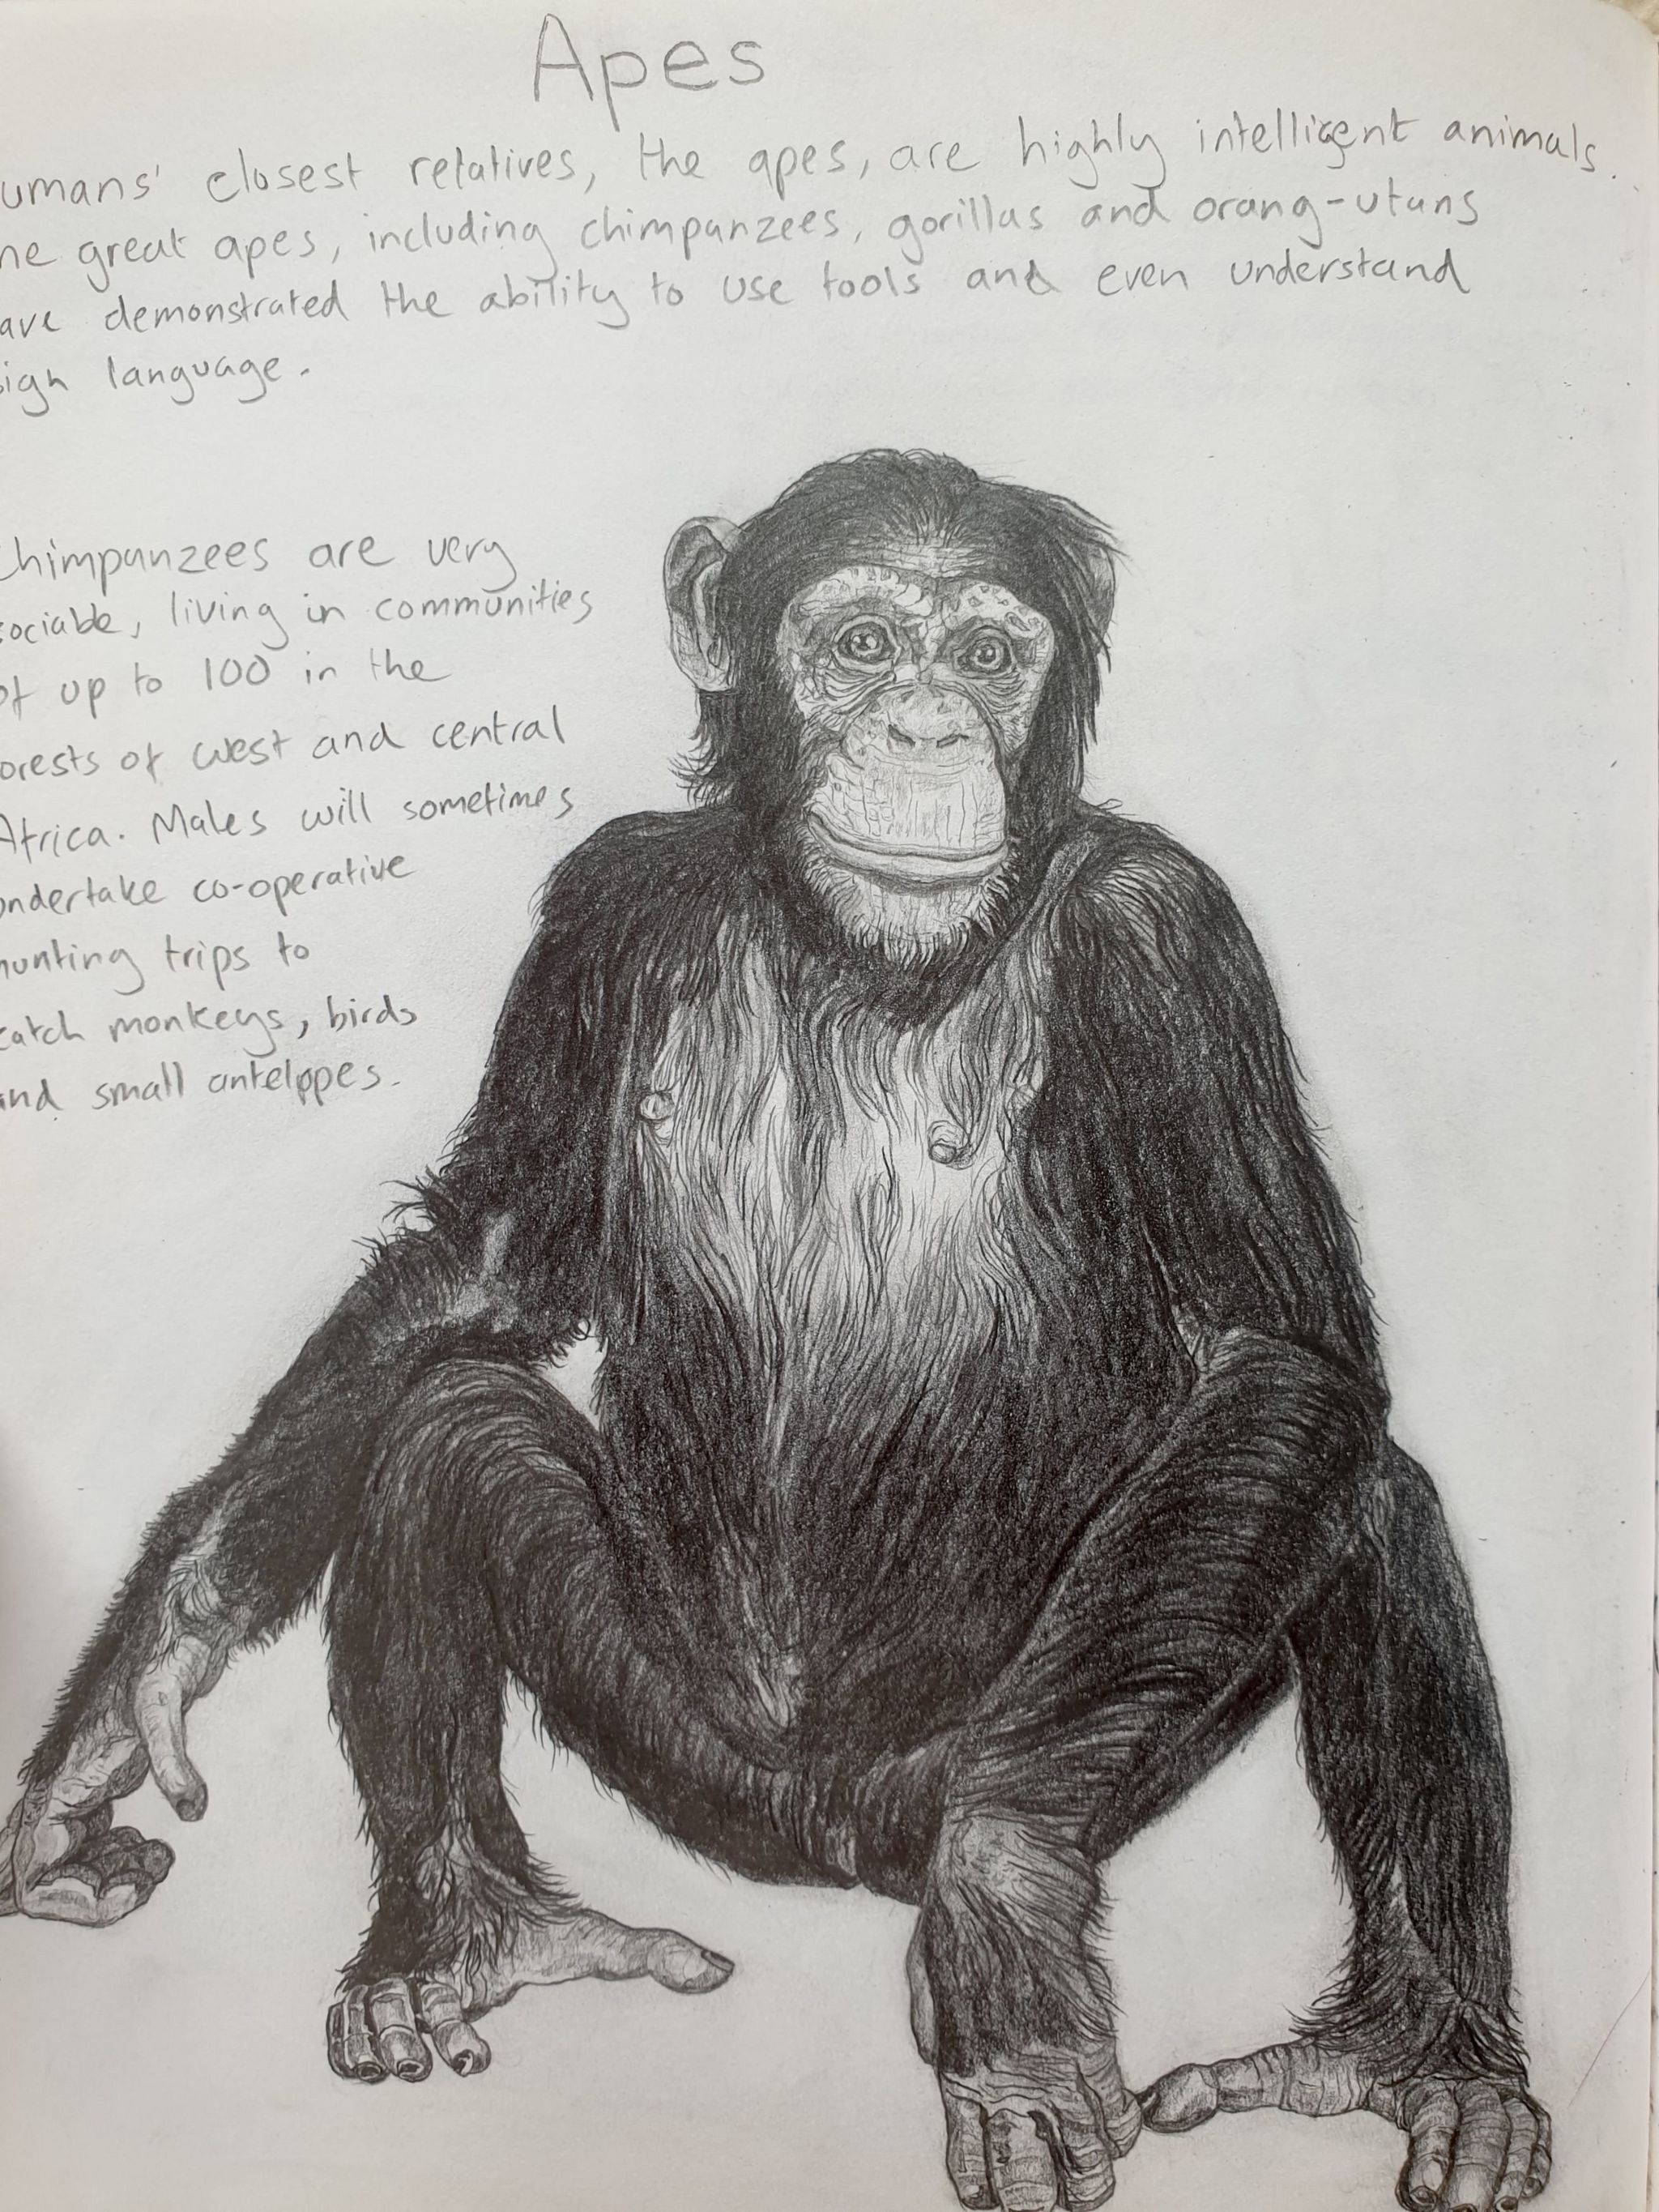 Apes
umans' closest relatives, the apes, are highly intelligent animals.
he great apes, including chimpanzees, gorillas and orang-utans
ave demonstrated the ability to use tools and even understand
sign language.
Chimpanzees are very
sociable, living in communities
of up to 100 in the
orests of west and central
Africa. Males will sometimes
undertake co-operative
hunting trips to
catch monkeys, birds
and small antelopes.